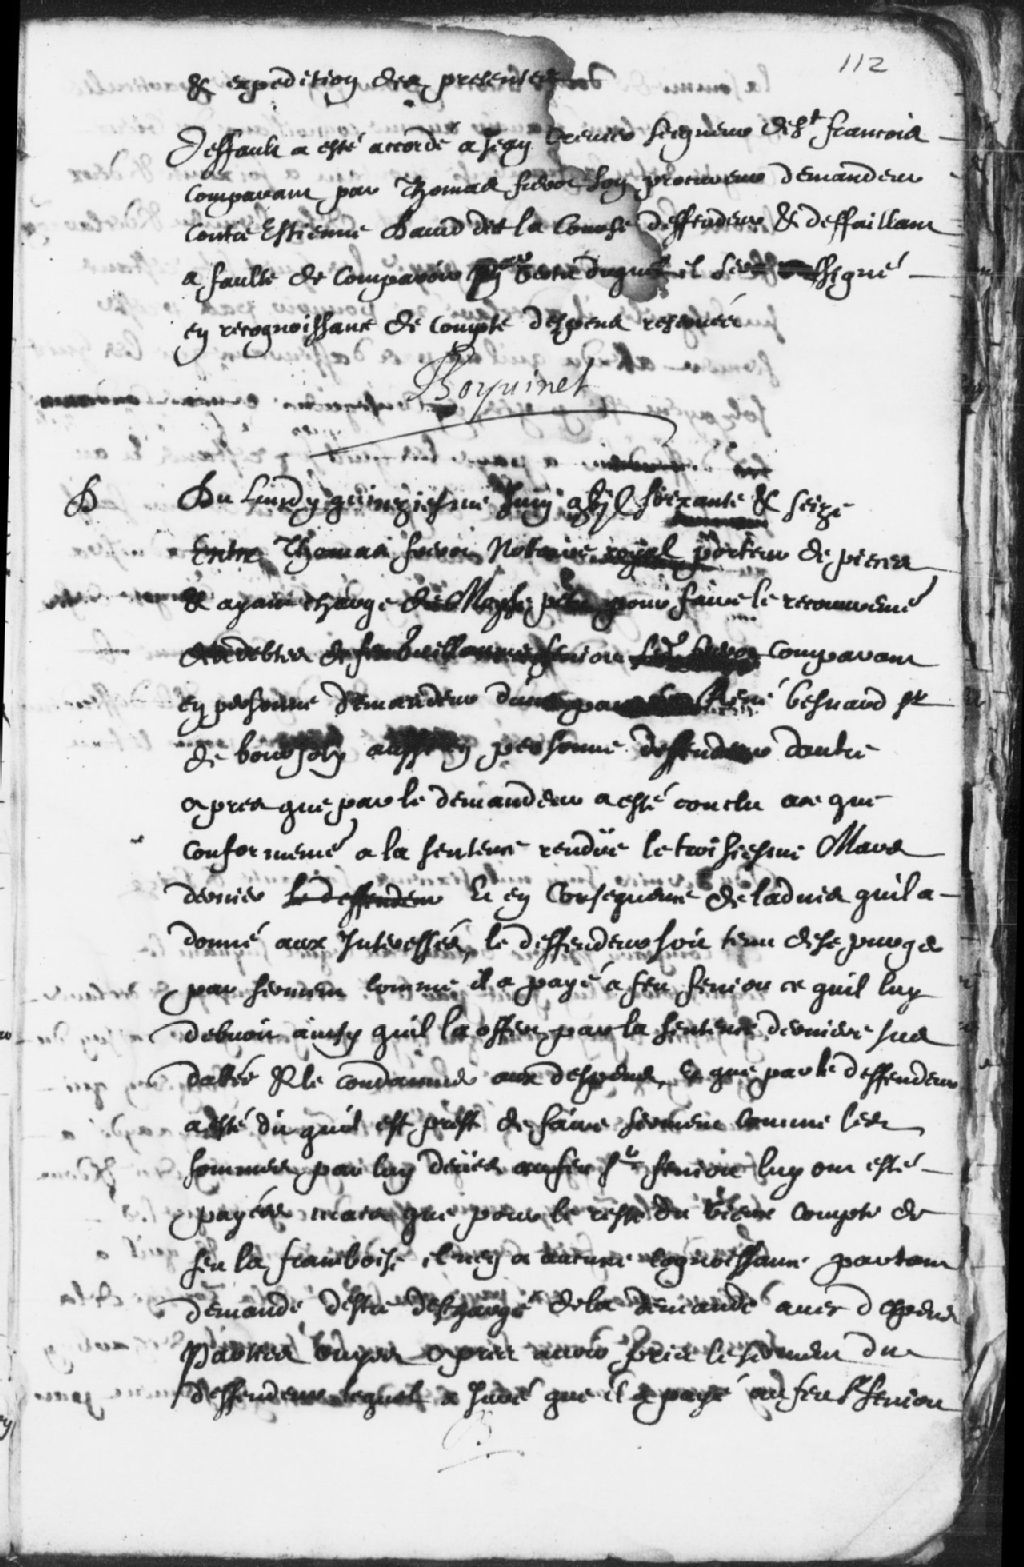 112
& expedition des presentes
Deffault a esté accordé a Jean Crevier seigneur de St francois
Comparant par Thomas frérot son procureur demandeur
Contre Estienne David dit la Course deffendeur & deffaillant
a faulte de Comparoir il sera assigné
en recognoissance de Compte despens reservées
Boyvinet
D Du Lundy quinziesme Juin gbjc soixante & seize
Entre Thomas frérot Nottaire royal porteur de pieces
& ayant charge pour faire le recouvremt
des debtes de feu Guillaume feniou Comparant
en personne demandeur dune part René besnard sr
de bourjoly aussy en personne deffendeur dautre
apres que par le demandeur a esté conclu a ce que
conformemt a la sentence rendüe le troisiesme Mars
dernier le deffendeur Et en Consequence de ladvis quil a
donné aux Interessés, le deffendeur soit tenu de se purger
par serment comme il a payé a feu feniou ce quil luy
debvoit ainsy quil la offert par la sentence derniere sus
dattée & le condamner aux despens, & que par le deffendeur
a esté dit quil est prest de faire serment comme les
sommes par luy deües au feu sr feniou luy ont esté
payées mais que pour le reste du vieux Compte de
feu la framboise il nen a aucune cognoissance partant
demande destre deschargé de la demande avec despens
Parties ouyes apres avoir pris le serment du
deffendeur lequel a Juré que il a payé au feu sr feniou